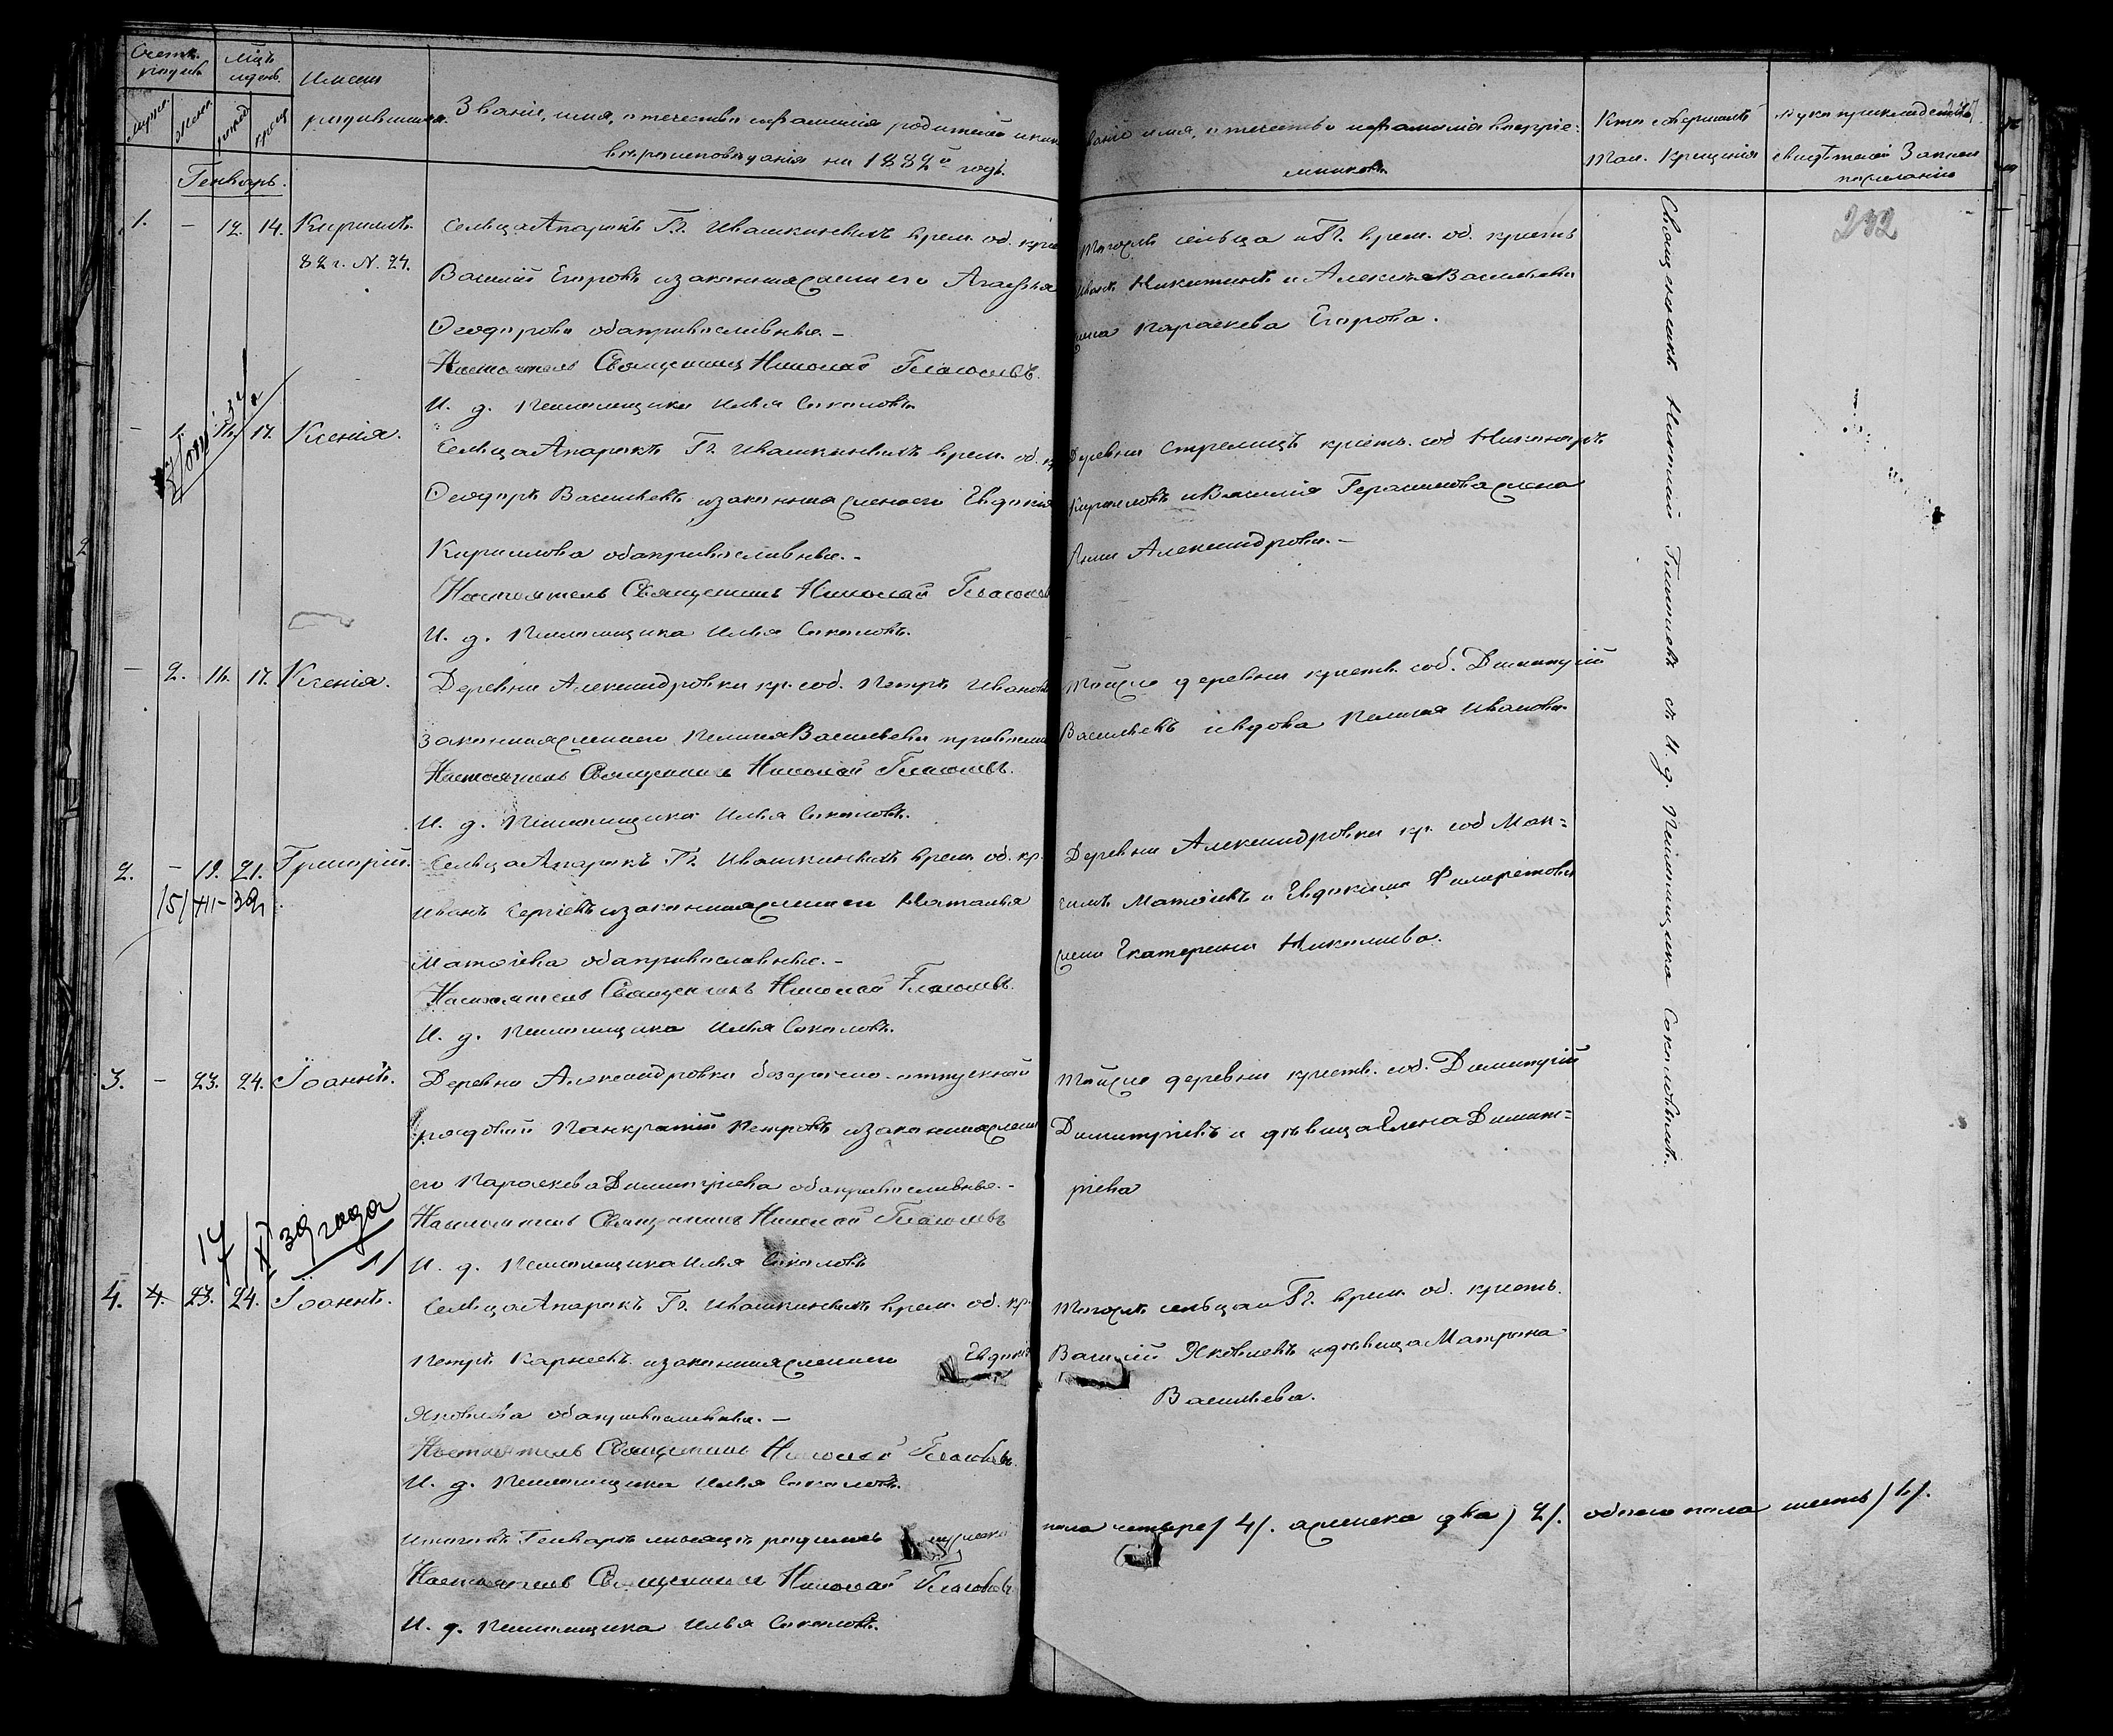 Счетъ родивш.
Мцъ и день.
Имена родившихся.
Званіе, имя, отечество и фамилія родителей и какого
вѣроисповѣданія на 1882й годъ.
Званіе имя, отечество и фамилія воспріе=
мниковъ.
Кто совершалъ
Таи. Крещенія
Рукоприкладство
свидѣтелей записи
по желанію
Муже.
Жен.
рожд
крещ
Генварь.
232
1. – 12. 14. Кириллъ.
82 г. N. 24.
Сельца Апарокъ Гг. Ивашкиныхъ врем. об. крест
Василій Егоровъ и законная жена его Агафья
Ѳеодорова оба православные. –
Настоятель Священникъ Николай
И. д. Псаломщика Илья Соколовъ
Тогожъ сельца и Гг. врем. об. крестъ
Иванъ Никитинъ и Алексѣя Васильева
жена Параскева Егорова.
– 1. 16. 17. Ксенія.
Сельца Апарокъ Гг. Ивашкиныхъ врем. об. кр
Ѳеодоръ Васильевъ и законная жена его Евдокія
Кириллова оба православные. –
Настоятель Священникъ Николай
И. д. Псаломщика Илья Соколовъ.
Деревни Стрелицъ крестъ. соб Никаноръ
Кирилловъ и Василія Герасимова жена
Анна Александрова. –
– 2. 16. 17. Ксенія.
Деревни Александровки кр. соб. Петръ Ивановъ
законная жена его Пелагія Васильева православ
Настоятель Священникъ Николай
И. д. Псаломщика Илья Соколовъ.
Тойже деревни крестъ. соб. Димитрій
Васильевъ и вдова Пелагія Иванова
2. – 19. 21. Григорій.
15/XII-39г
Сельца Апарокъ Гг. Ивашкиныхъ врем. об. кр.
Иванъ Сергѣевъ и законная жена его Наталья
Матѳіева оба православные. –
Настоятель Священникъ Николай
И. д. Псаломщика Илья Соколовъ.
Деревни Александровки кр. соб Мак=
симъ Матѳіевъ и Евдокима Филаретова
жена Екатерина Николаева.
3. – 23. 24. Іоаннъ.
Деревни Александровки безсрочно-отпускной
рядовой Панкратій Петровъ и законная жена
его Параскева Димитріева оба православные. –
Настоятель Священникъ Николай
И. д. Псаломщика Илья Соколовъ
Тойже деревни крестъ. соб. Димитрій
Димитріевъ и дѣвица Елена Димит=
ріева
39 года
4. 4. 23. 24. Іоаннъ.
Сельца Апарокъ Гг. Ивашкиныхъ врем. об. кр.
Петръ Карнеевъ и законная жена его Евдокія
Яковлева оба православные. –
Настоятель Священникъ Николай
И. д. Псаломщика Илья Соколовъ.
Тогожъ сельца и Гг. врем. об. крестъ.
Василій Яковлевъ и дѣвица Матрона
Васильева.
Священникъ Николай с И. д. Псаломщика Соколовымъ.
Итого въ Генварѣ мѣсяцѣ родилось мужеска
пола четыре /4/. а женска два /2/. обоего пола шесть /6/.
Настоятель Священникъ Николай
И. д. Псаломщика Илья Соколовъ.